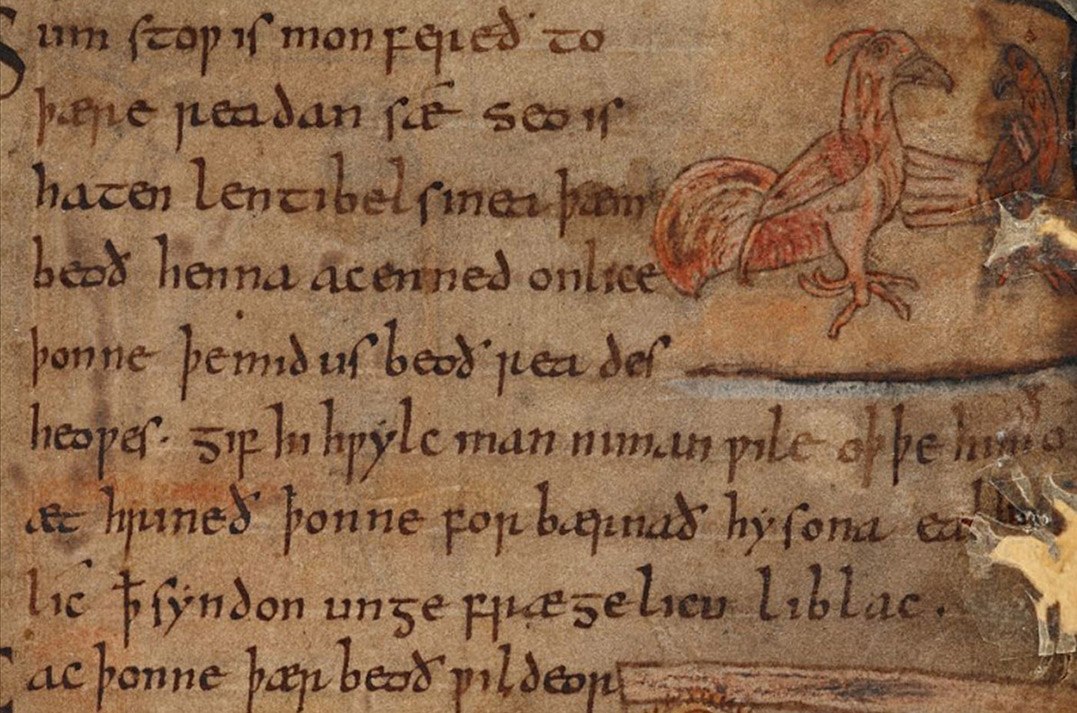 Sum stoƿ is mon fereð to
þære readan sǽ seo is
haten lentibelsinea þæm
beoð henna acenned onlice
þonne þe mid us beoð rea des
heoƿes· gif hi hƿẏlc man niman ƿile oþþe hiora
æt hrineð þonne for bærnað hẏ sona eal
líc ꝥ sẏndon unge frægelicu liblac.
Eac þonne þær beoð ƿildeor